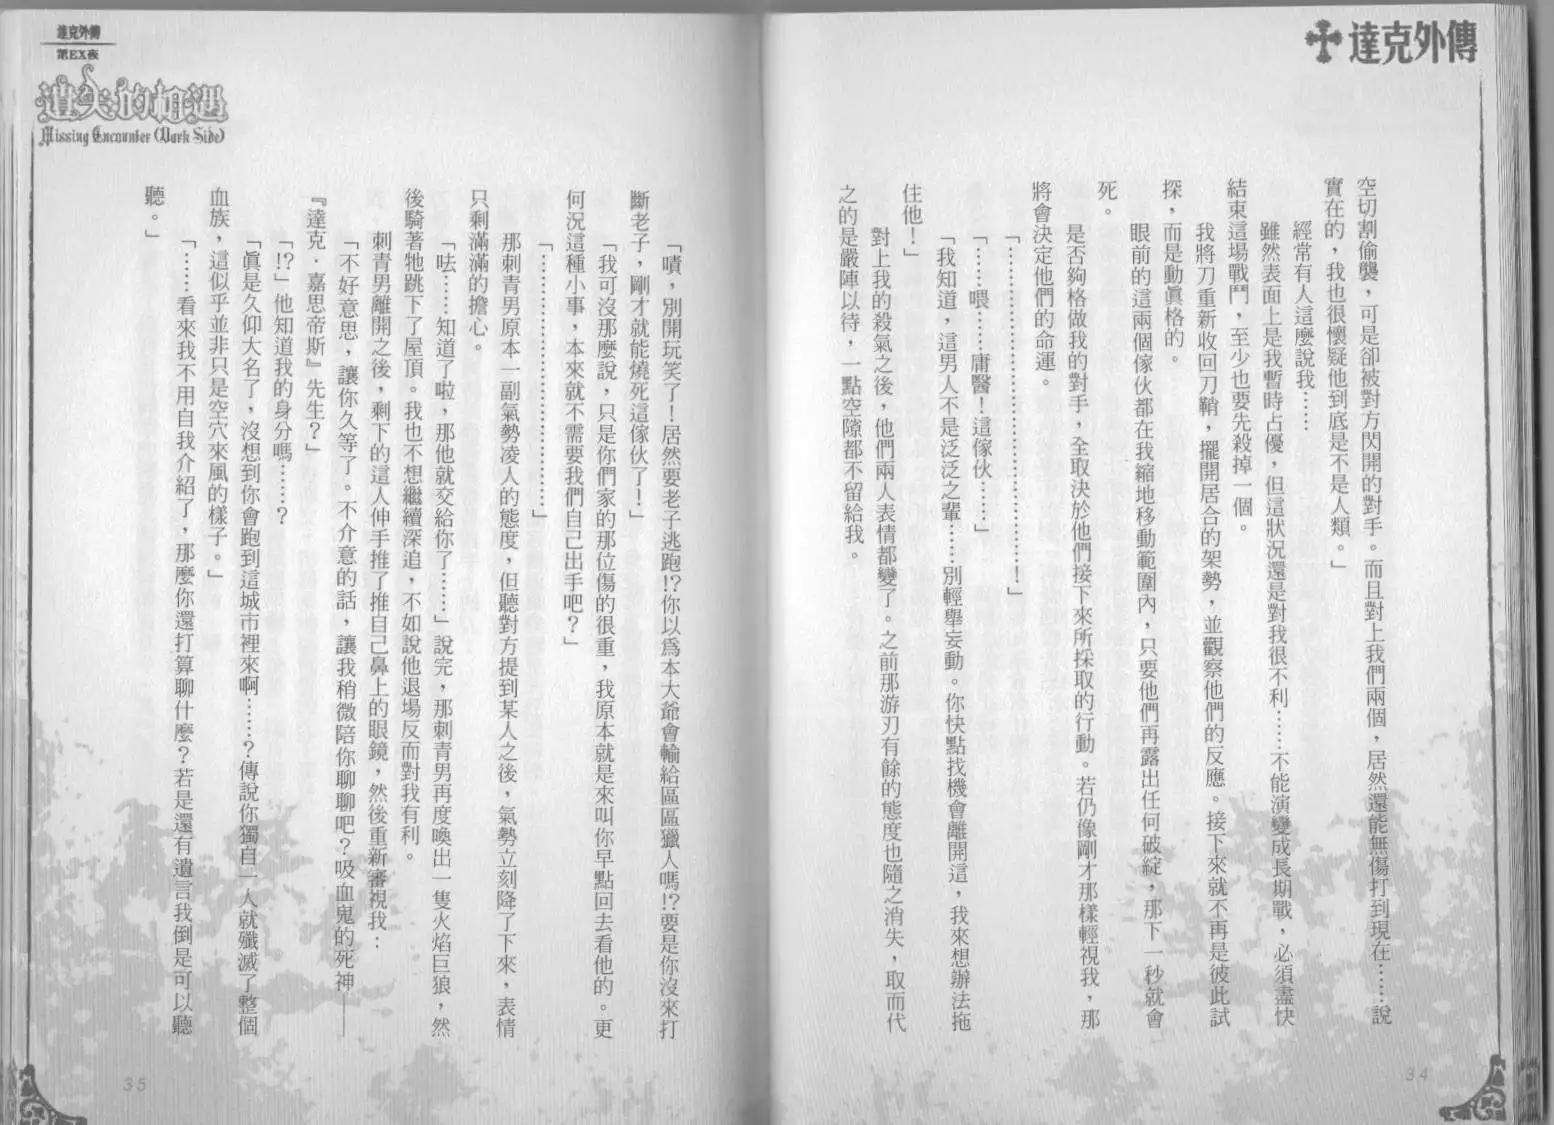 達克外傳
空切割偷襲，可是卻被對方閃開的對手。而且對上我們兩個，居然還能無傷打到現在……說
實在的，我也很懷疑他到底是不是人類。」
經常有人這麼說我……
雖然表面上是我暫時占優，但這狀況還是對我很不利……不能演變成長期戰，必須盡快
結束這場戰鬥，至少也要先殺掉一個。
我將刀重新收回刀鞘，擺開居合的架勢，並觀察他們的反應。接下來就不再是彼此試
探，而是動眞格的。
眼前的這兩個傢伙都在我縮地移動範圍內，只要他們再露出任何破綻，那下一秒就會
死。
是否夠格做我的對手，全取決於他們接下來所採取的行動。若仍像剛才那樣輕視我，那
將會決定他們的命運。
「…………………………………！」
「……喂……庸醫！這傢伙……」
「我知道，這男人不是泛泛之輩……別輕舉妄動。你快點找機會離開這，我來想辦法拖
住他！」
對上我的殺氣之後，他們兩人表情都變了。之前那游刃有餘的態度也隨之消失，取而代
之的是嚴陣以待，一點空隙都不留給我。
34
達克外傳
第EX夜
遺失的相遇
Missing Encounter (Dark Side)
「嘖，別開玩笑了！居然要老子逃跑!?你以爲本大爺會輸給區區獵人嗎!?要是你沒來打
斷老子，剛才就能燒死這傢伙了！」
「我可沒那麼說，只是你們家的那位傷的很重，我原本就是來叫你早點回去看他的。更
何況這種小事，本來就不需要我們自己出手吧？」
「…………………………」
那刺青男原本一副氣勢凌人的態度，但聽對方提到某人之後，氣勢立刻降了下來，表情
只剩滿滿的擔心。
「呿……知道了啦，那他就交給你了……」說完，那刺青男再度喚出一隻火焰巨狼，然
後騎著牠跳下了屋頂。我也不想繼續深追，不如說他退場反而對我有利。
刺青男離開之後，剩下的這人伸手推了推自己鼻上的眼鏡，然後重新審視我：
「不好意思，讓你久等了。不介意的話，讓我稍微陪你聊聊吧？吸血鬼的死神——
『達克．嘉思帝斯』先生？」
「!?」他知道我的身分嗎……？
「眞是久仰大名了，沒想到你會跑到這城市裡來啊……？傳說你獨自一人就殲滅了整個
血族，這似乎並非只是空穴來風的樣子。」
「……看來我不用自我介紹了，那麼你還打算聊什麼？若是還有遺言我倒是可以聽
聽。」
35